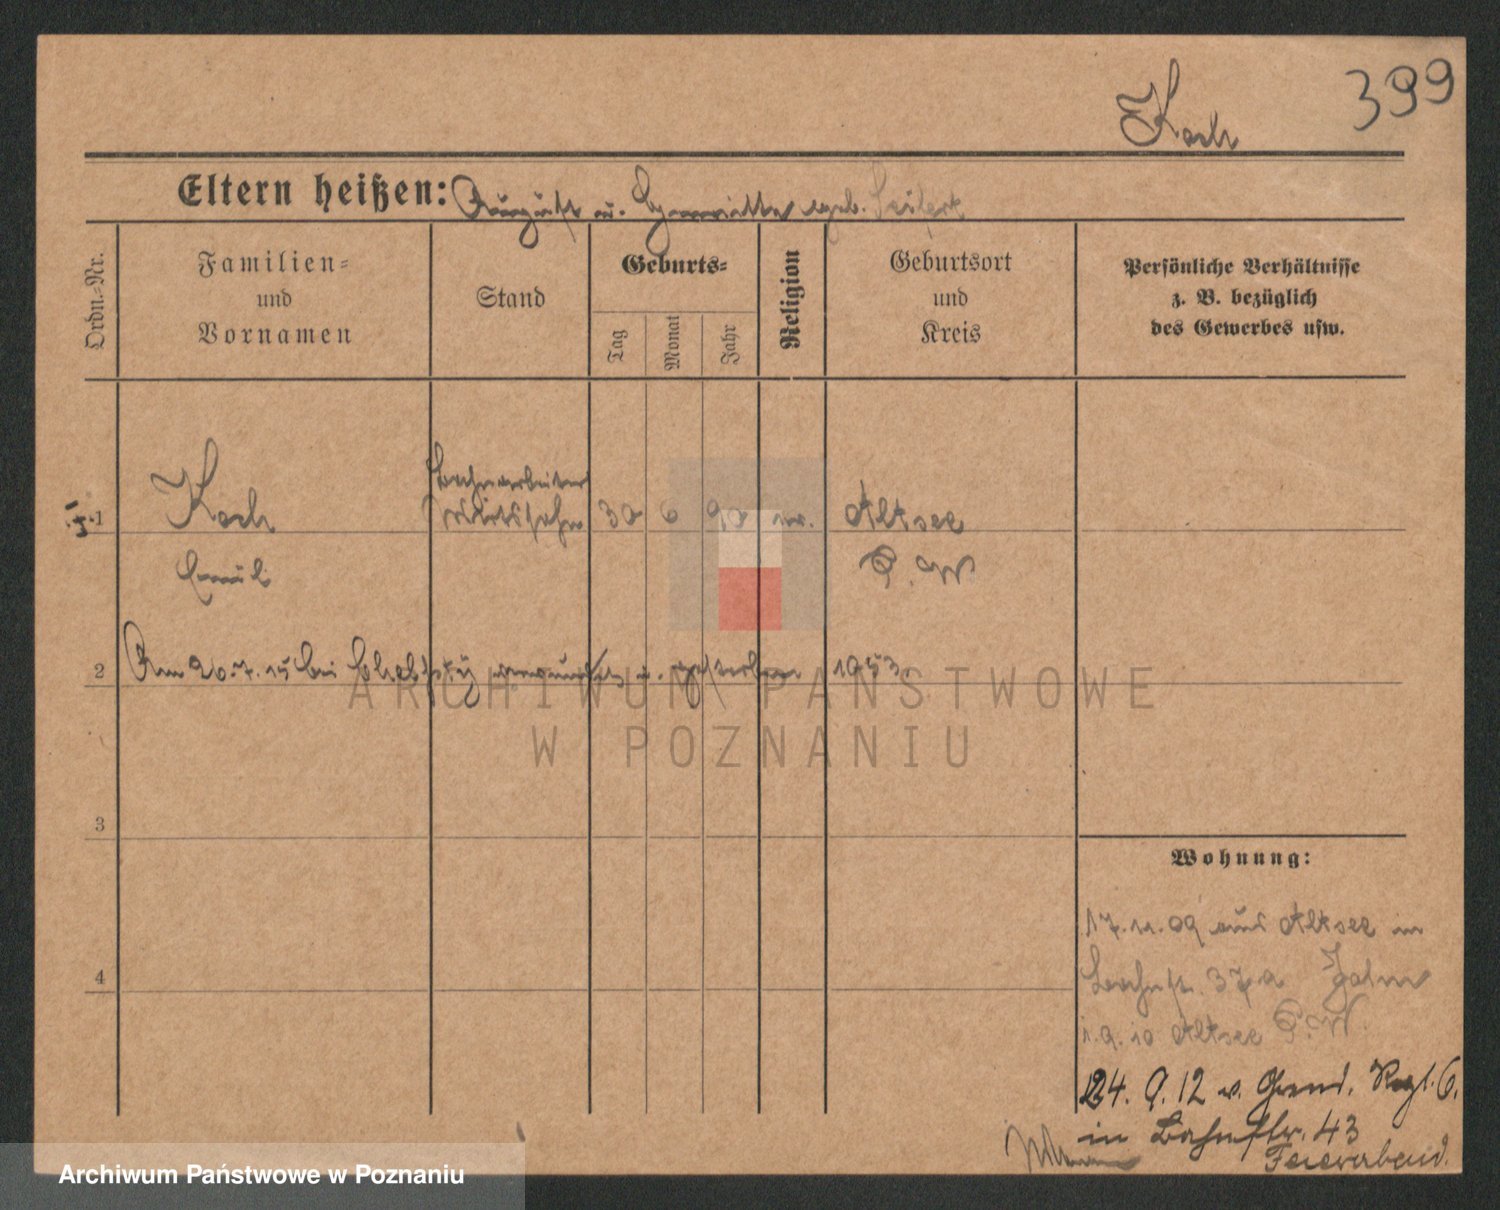 399
Koch
Eltern heißen: August u. Henriette geb. Seifert
Ordn.-Nr.
Familien-
und
Vornamen
Stand
Geburts-
Tag
Monat
Jahr
Religion
Geburtsort
und
Kreis
Persönliche Verhältnisse
z. B. bezüglich
des Gewerbes usw.
1
Koch
Emil
30 6 90
Altsee
P. W
2
Am 20.7.15 bei verwundet u. gestorben 1953
3
4
Wohnung:
17.11.09 aus Altsee in
Bachstr. 37a
1.9.10 Altsee P. W
24. 9. 12 v. Gren. Regt. 6.
in 43
ARCHIWUM PAŃSTWOWE
W POZNANIU
Archiwum Państwowe w Poznaniu